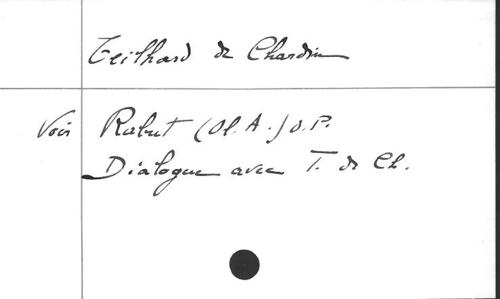 Teilhard de Chardin
Voir Rabut (Ol. A.) O.P.
Dialogue avec T. de Ch.